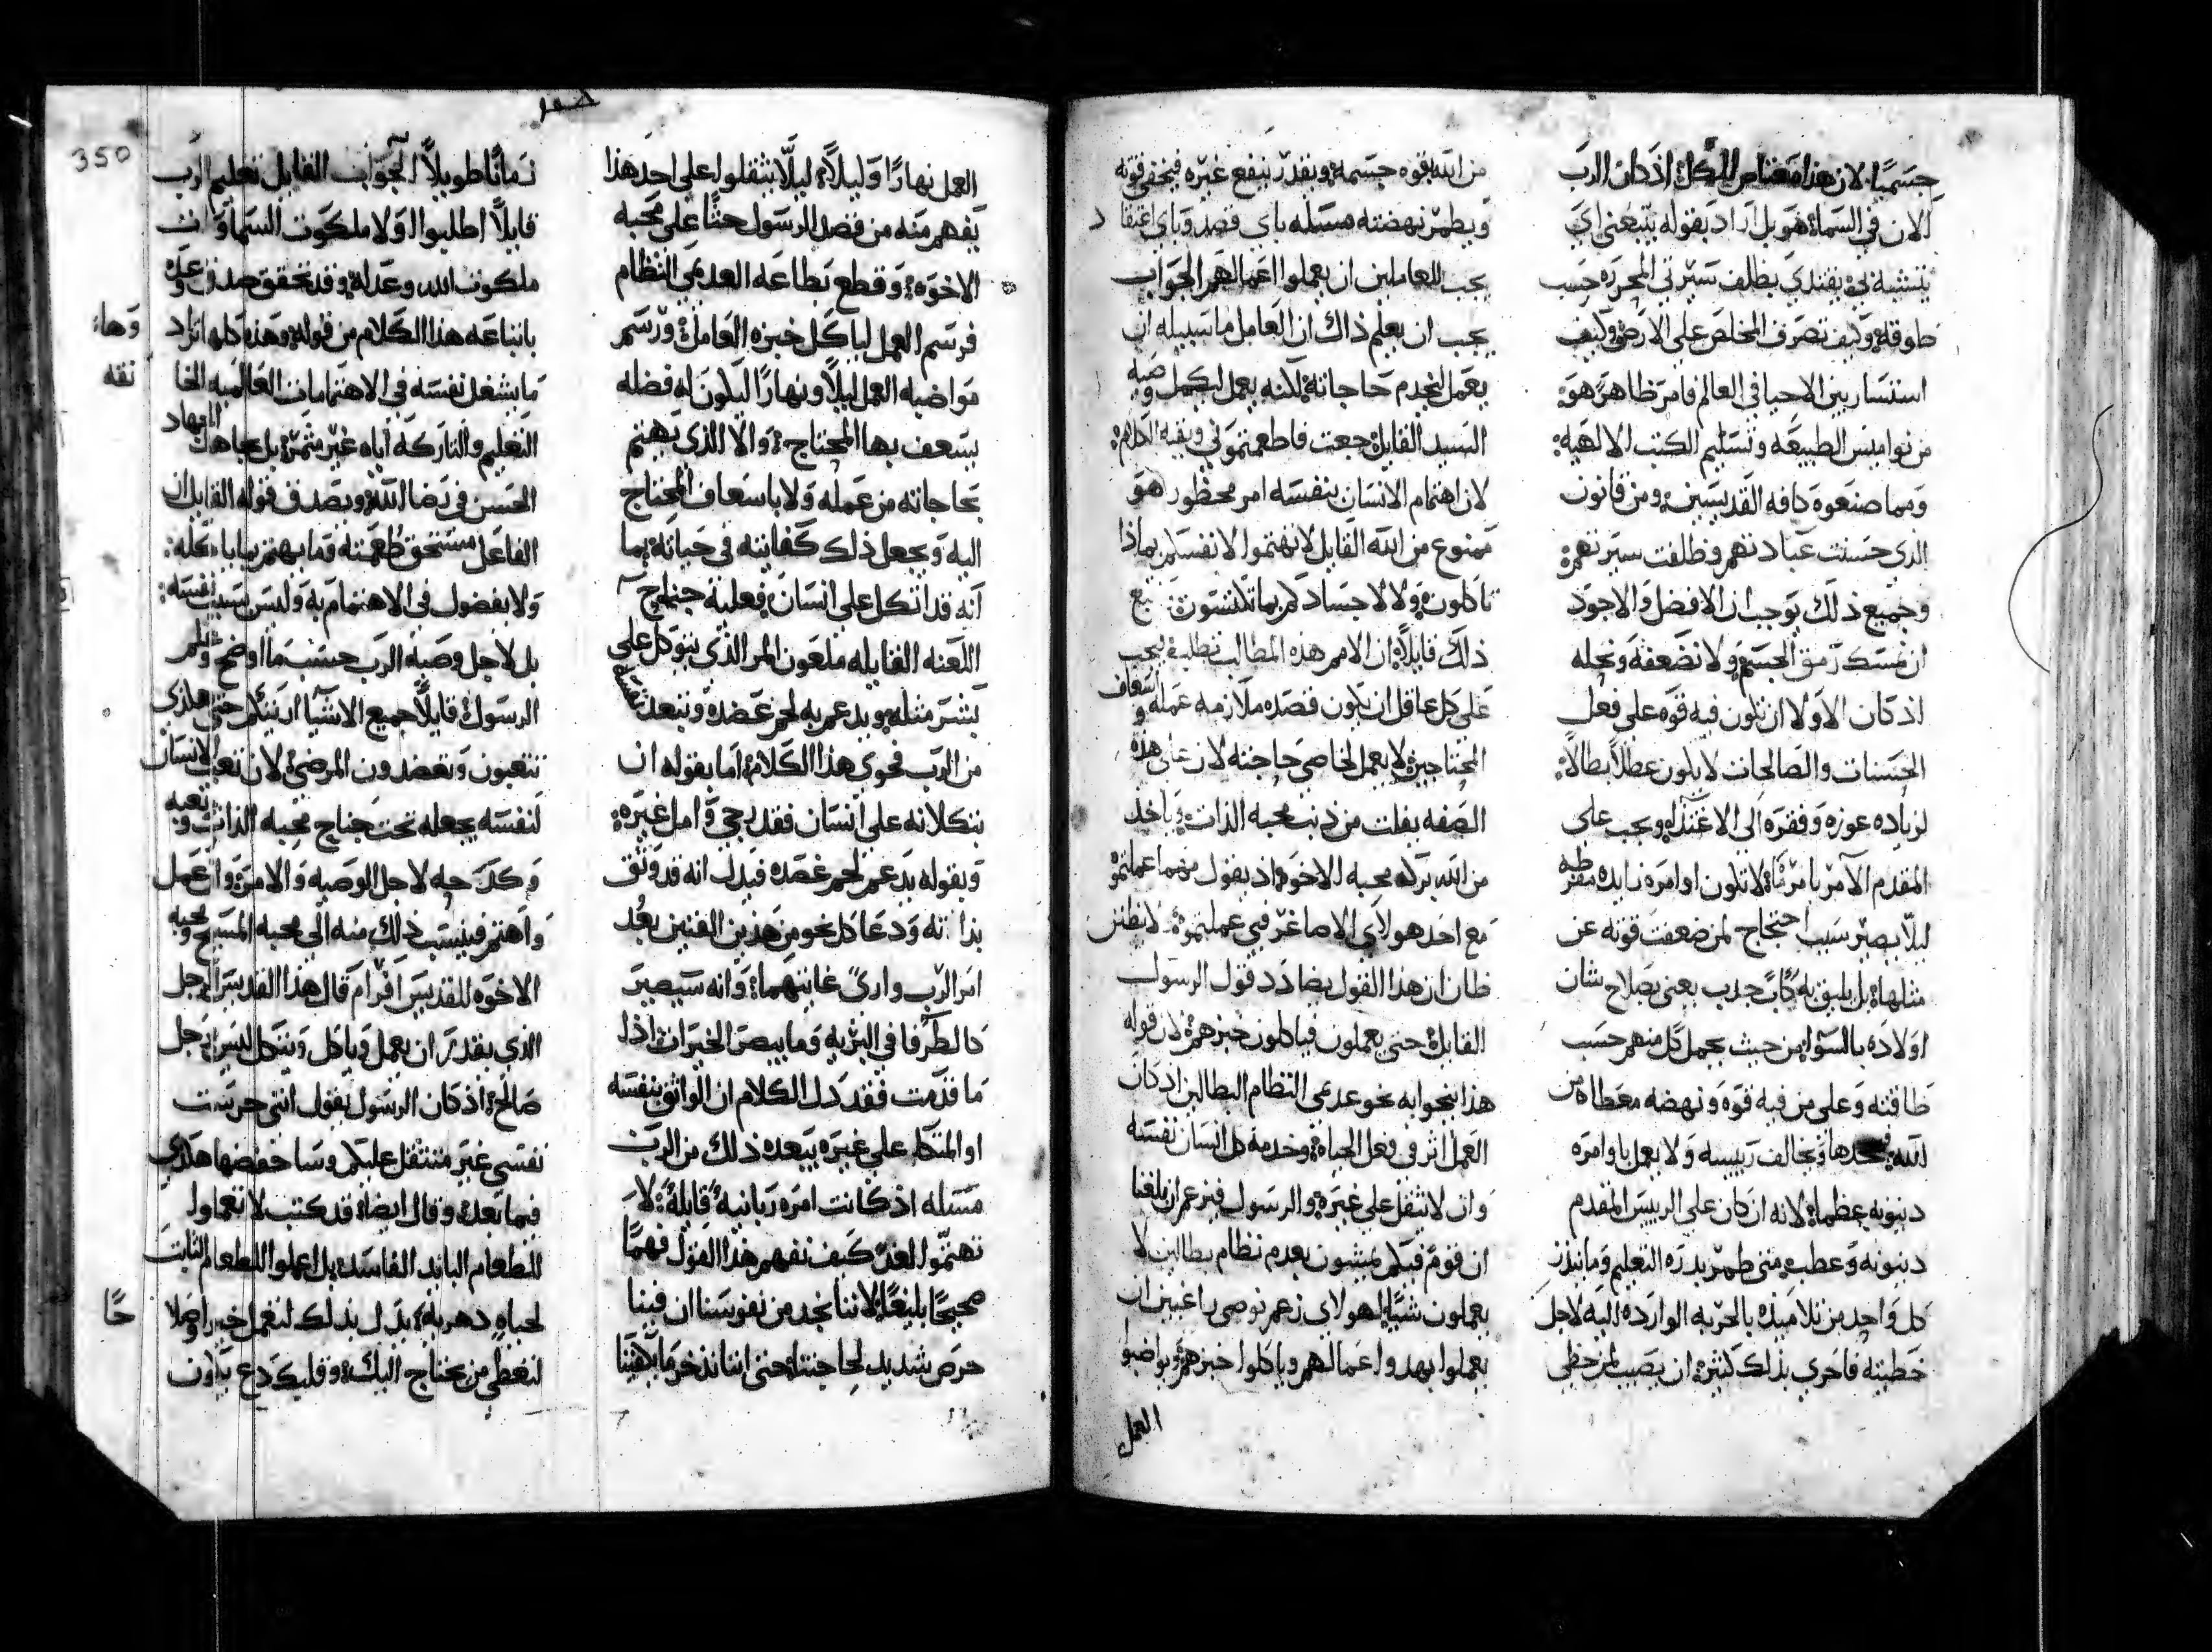 جسميًا لان هذا مغتاص للكل اذ كان الرب
الان في السما هو بل اراد بقوله يتبعني اي
يتشبه بي يقتدي بظلف سيرتي المحرره حسب
طوقه وكيف تصرف المخلص على الارض وكيف
استسار بين الاحيا في العالم فامر ظاهر هو
من نواميس الطبيعه وتسليم الكتب الالهيه
ومما صنعوه كافه القديسين ومن قانون
الذي حسنت عبادتهم وظلفت سيرتهم
وجميع ذلك يوجب ان الافضل والاجود
ان نمسك رمق الجسم ولا نضعفه ونحله
اذ كان الاولا ان تكون فيه قوه على فعل
الحسنات والصالحات لا يكون عطلًا بطالًا
لزياده عوزه وفقره الى الاغتذا ويجب على
المقدم الآمر بامر ما لا تكون اوامره زايده مفرطه
ليلا يصير سبب احتجاج لمن ضعفت قوته عن
مثلها بل يليق به كاب حدب يعنى بصلاح شان
اولاده بالسوا من حيث يحمل كل منهم حسب
طاقته وعلى من فيه قوه ونهضه معطاه من
الله فيجحدها ويخالف رييسه ولا يعمل باوامره
دينونه عظما لانه ان كان على الرييس المقدم
دينونه وعطب متى طمر بدره التعليم وما ينذر
كل واحد من تلاميذه بالحربه الوارده اليه لاجل
خطيته فاحري بذلك كثير ان يصيب لمن حظي
من الله بقوه جسمه ويقدر ينفع غيره فيخفي قوته
ويطمر نهضته مسله باي قصد وباي اعتقاد
يجب للعاملين ان يعملوا اعمالهم الجواب
يجب ان يعلم ذاك ان العامل ما سبيله ان
يعمل لخدم حاجاته لكنه يعمل ليكمل وصيه
السيد القايل جعت فاطعمتموني وبقيه الكلام
لان اهتمام الانسان بنفسه امر محظور هو
ممنوع من الله القايل لا تهتموا لانفسكم بماذا
تاكلون ولا لاجسادكم بما تلبسون يتبع
ذلك قايلًا ان الامم هذه المطالب تطلب فيجب
على كل عاقل ان يكون قصده ملازمه عمله واسعاف
المحتاجين لا يعمل لخاصي حاجته لان على هذه
الصفه يفلت من ذنب محبه الذات وياخذ
من الله بركه محبه الاخوه اذ يقول مهما عملتموه
مع احد هولاي الاصاغر فبي عملتموه لا يظنن
ظان ان هذا القول يضادد قول الرسول
القايل حتى يعملون فياكلون خبزهم لان قوله
هذا ينحوا به نحو عدمى النظام البطالين اذ كان
العمل اثر في فعل الحياه وخدمه كل انسان نفسه
وان لا تثقل على غيره والرسول فيزعم ان بلغنا
ان قوم فيكم يمشون بعدم نظام بطالين لا
يعملون شيًا لهولاي زعم نوصي راغبين ان
يعملوا بهدوا عمالهم وياكلوا خبزهم ويواضبوا
العمل
350
العمل نهارًا وليلًا ليلّا يثقلوا على احد هذا
يفهم منه من فصل الرسول حثًا على محبه
الاخوه وقطع بطاعه العدمي النظام
فرسم العمل لياكل خبزه العامل ورسم
مواضبه العمل ليلًا ونهارًا ليكون له فضله
يسعف بها المحتاج والا الذي يهتم
بحاجاته من عمله ولا باسعاف المحتاج
اليه ويجعل ذلك كفايته في حياته بما
انه قد اتكل على انسان فعليه جناح
اللعنه القايله ملعون المر الذي يتوكل على
بشر مثله ويدعم به لحم عضده وتبعد نفسه
من الرب فحوي هذا الكلام اما بقوله ان
يتكلانه على انسان فقد رجي وامل غيره
وبقوله يدعم لحم عضده فيدل انه قد وثق
بذاته ودعا كل نحو من هذين الفنين بعد
امر الرب واري غايتهما وانه سيصير
كالطرفا في البريه وما يبصر الخيرات اذا
ما قدمت فقد دل الكلام ان الواثق بنفسه
او المتكل على غيره يبعده ذلك من الرب
مسله اذ كانت امره ربانيه قايله لا
تهتمّوا لغد كيف نفهم هذا القول فهمًا
صحيحًا بليغًا لاننا نجد من نفوسنا ان فينا
حرص شديد لحاجتنا حتى اننا نذخر ما يكفينا
زمانًا طويلًا الجواب القابل تعليم الرب
قايلًا اطلبوا اولا ملكوت السماوات
ملكوت الله وعدله وقد تحقق صدق وعده
باتباعه هذا الكلام من قوله وهذه كلها تزاد وها
ما يشغل نفسه في الاهتمامات العالميه الخانقه
التعليم والتاركه اياه غير مثمر بل بجاهد الجهاد
الحسن في رضا الله ويصدق قوله القايل ان
الفاعل مستحق طعمته وما يهتم بما ياكله
ولا بفضول في الاهتمام به وليس بسبب نفسه
بل لاجل وصيه الرب حسب ما اوضح وعلم
الرسول قايلًا جميع الاشيا اريتكم حتى هكذي
تتعبون وتعضدون المرضى لان تعب الانسان
لنفسه يجعله تحت جناح محبه الذات وتعبه
وكدحه لاجل الوصيه والامر وان عمل
واهتم فينسب ذلك منه الى محبه المسيح ومحبه
الاخوه للقديس افرام قال هذا القديس الرجل
الذي يقدر ان يعمل وياكل ويتكل ليس رجل
صالح اذ كان الرسول يقول انني حرست
نفسي غير متثقل عليكم وسا حفضها هكذي
فيما بعد وقال ايضا قد كتب لا تعملوا
للطعام البايد الفاسد بل اعملوا للطعام الثابت
لحياه دهريه بذل بذلك لنعمل خيرا وصلاحًا
لنعطي من يحتاج اليك وقلبك دع يكون